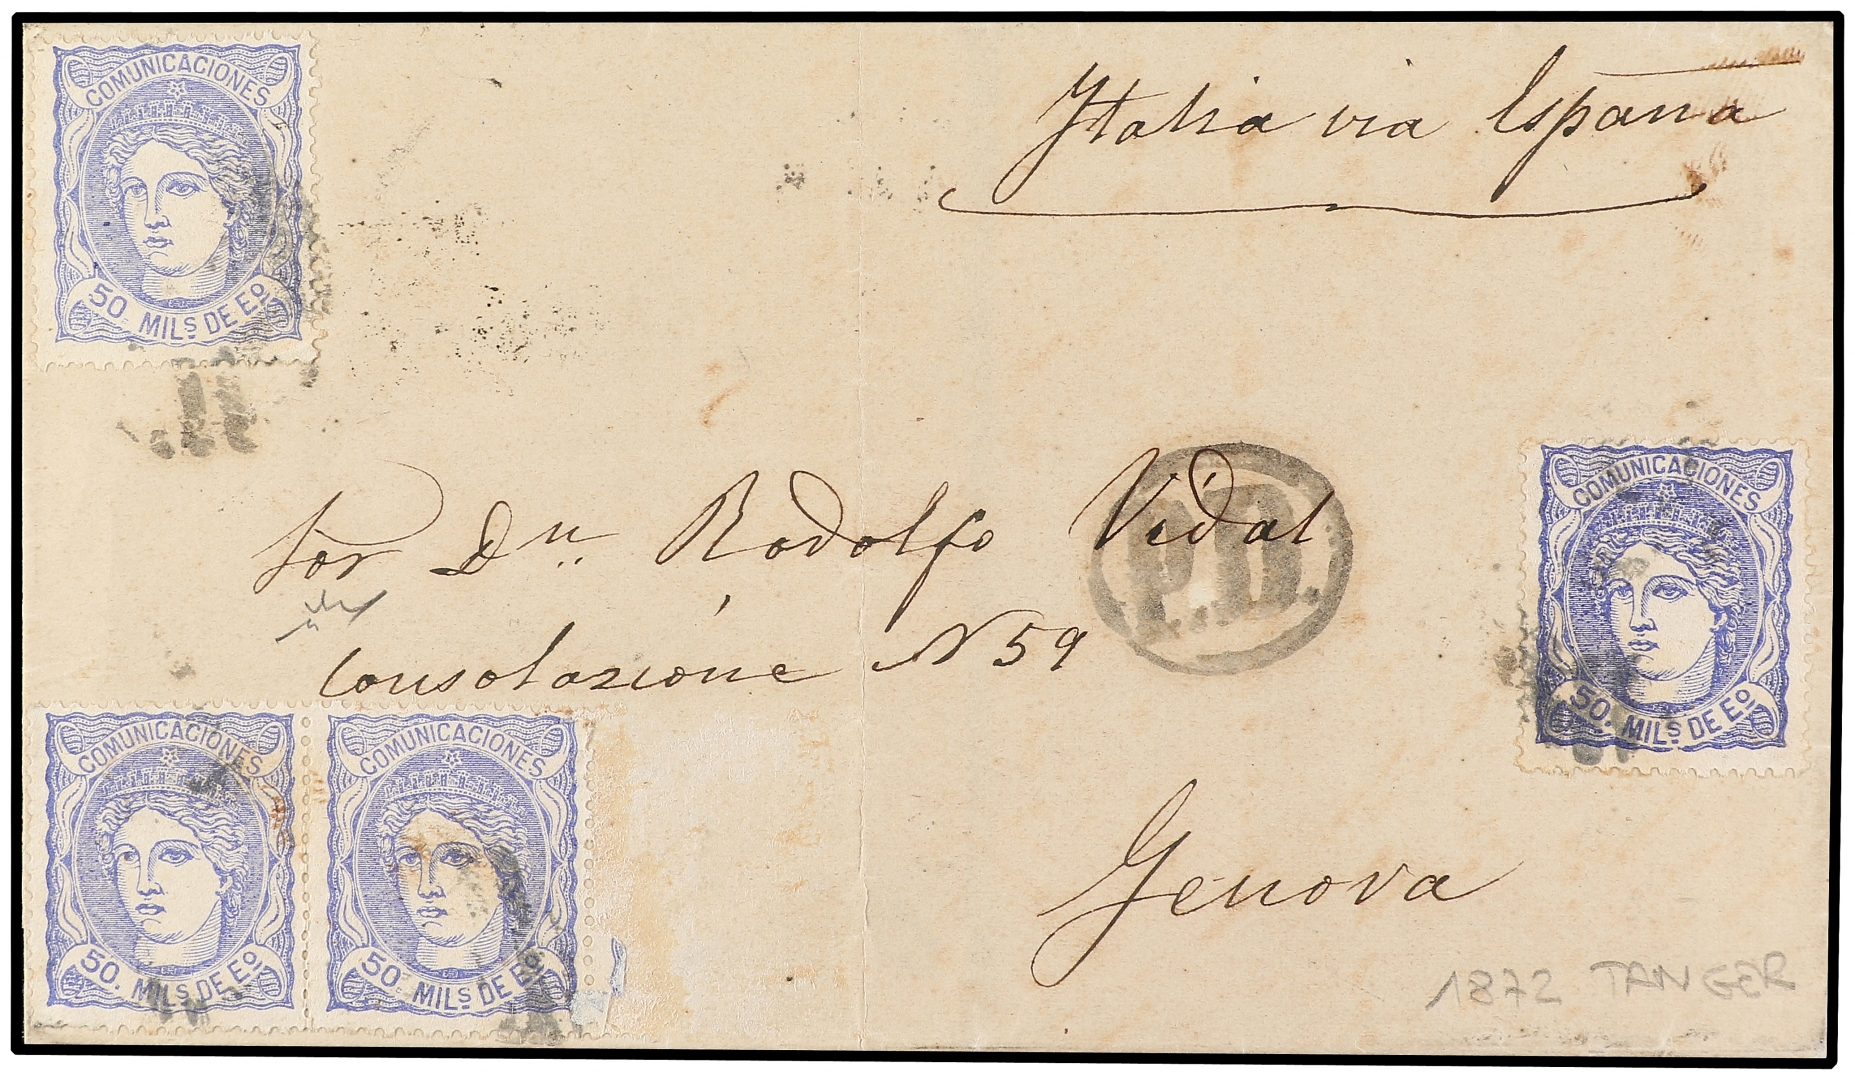 COMUNICACIONES
50. MILS DE Eº
Italia via España
Sor Dn. Rodolfo Vidal
P.D.
Consolazione N 59
COMUNICACIONES
50. MILS DE Eº
COMUNICACIONES
50. MILS DE Eº
COMUNICACIONES
50. MILS DE Eº
Genova
1872 TANGER